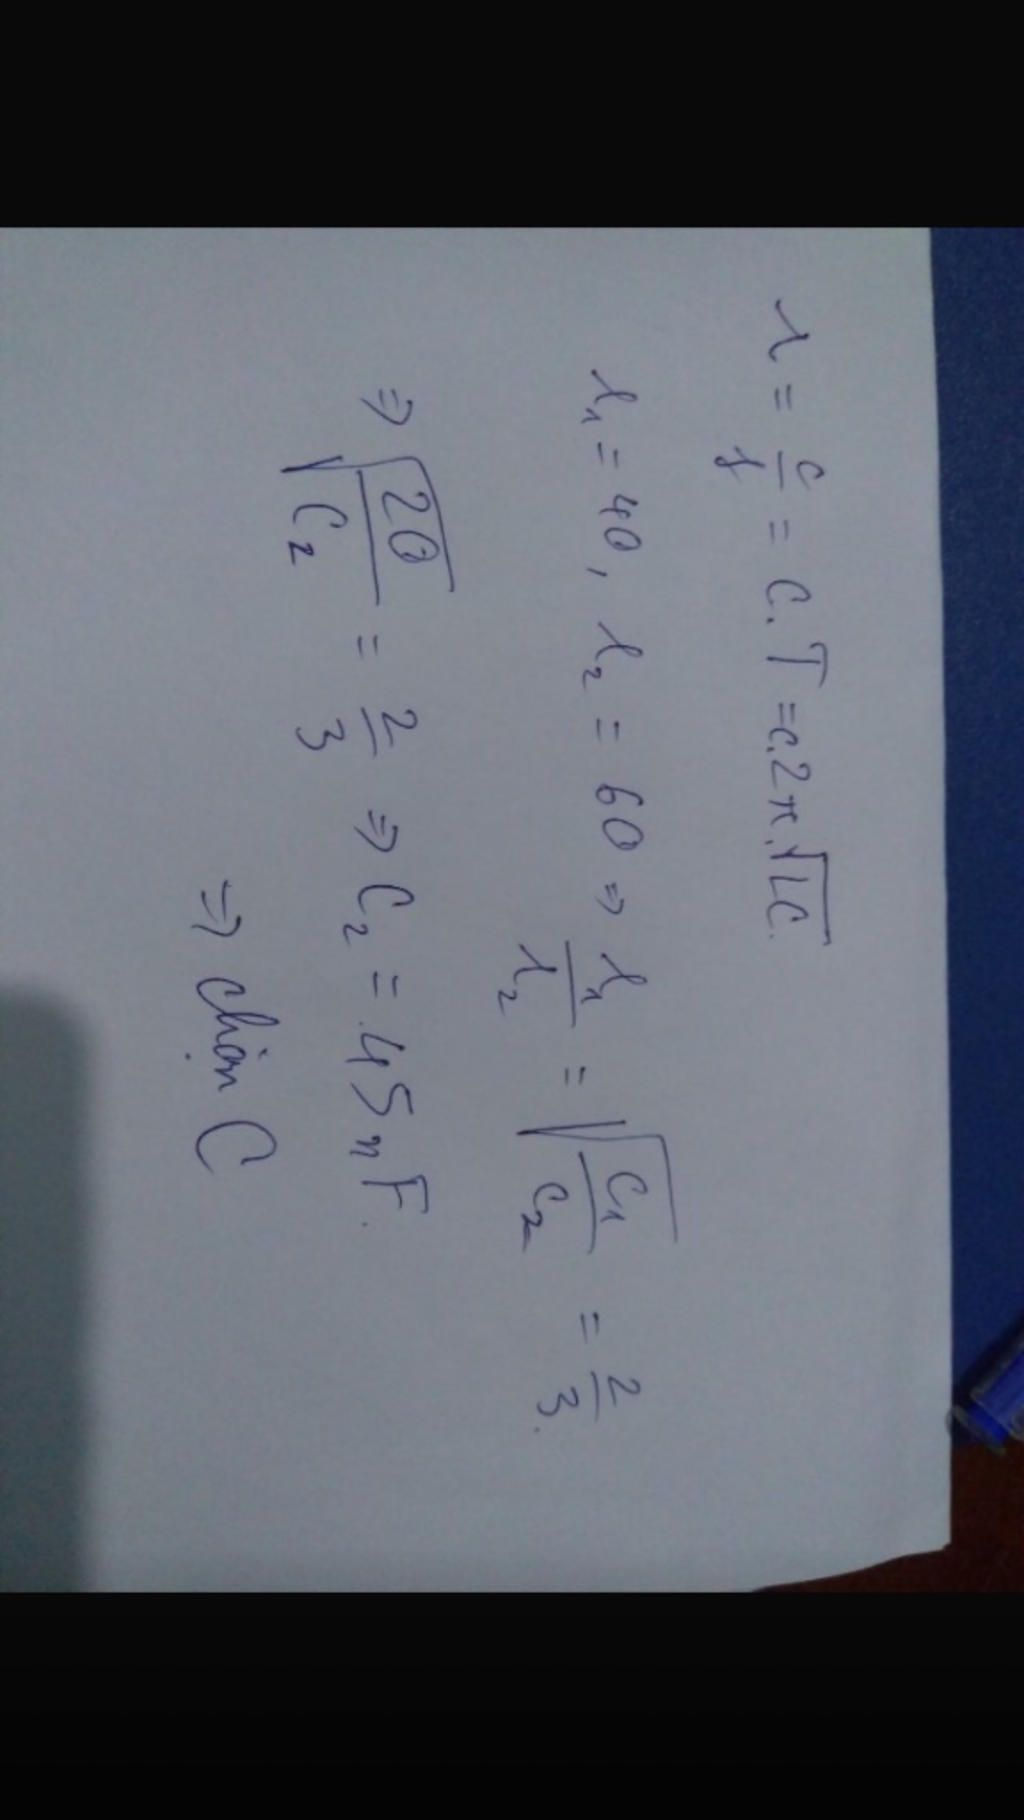 λ = c/f = c.T = c.2π.√LC.
λ₁ = 40, λ₂ = 60 ⇒ λ₁/λ₂ = √(C₁/C₂) = 2/3.
⇒ √(20/C₂) = 2/3 ⇒ C₂ = 45 nF.
⇒ chọn C